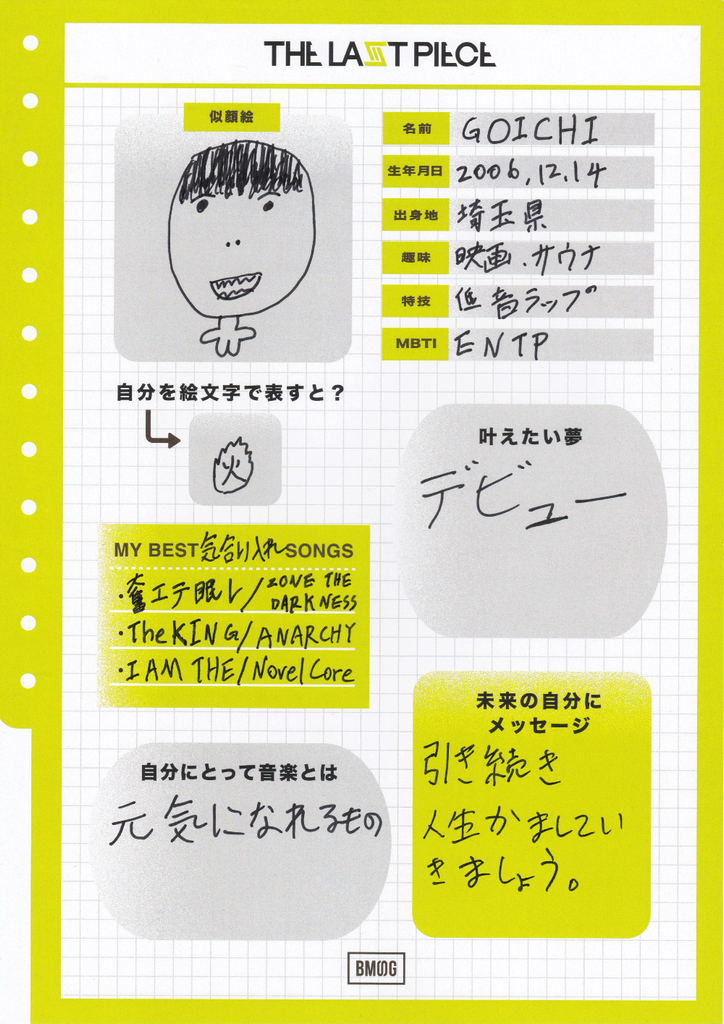 THE LAST PIECE
似顔絵
名前 GOICHI
生年月日 2006.12.14
出身地 埼玉県
趣味 映画.サウナ
特技 低音ラップ
MBTI ENTP
自分を絵文字で表すと？
火
叶えたい夢
デビュー
MY BEST 気合い入れ SONGS
・奮エテ眠レ/ZONE THE DARKNESS
・The KING/ANARCHY
・I AM THE/Novel Core
未来の自分に
メッセージ
引き続き
人生かましてい
きましょう。
自分にとって音楽とは
元気になれるもの
BMSG